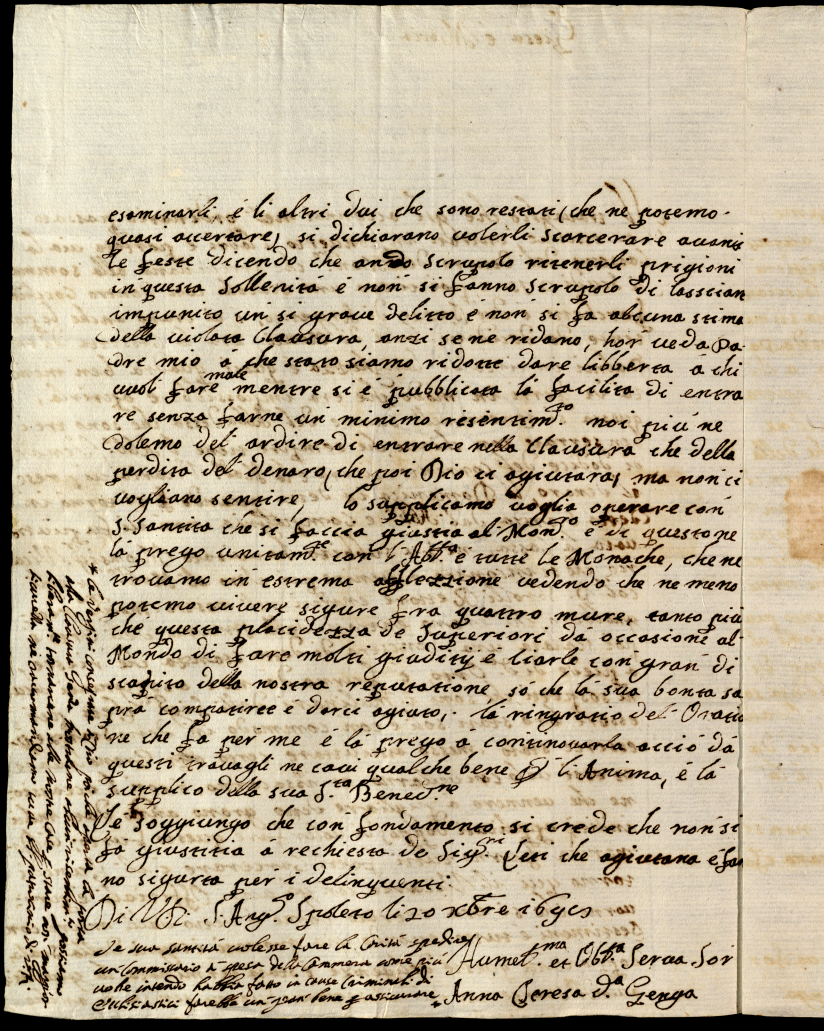 esaminarli, é li altri dui che sono restati, che ne potemo
quasi accertare, si dichiarano volerli scarcerare avanti
le feste dicendo che anno scrupolo ritenerli prigioni
in questa Sollenita é non si fanno scrupolo di lassciar
impunito un si grave delitto é non si fa alcuna stima
della violata Clausura, anzi se ne ridano, hor veda Pa
dre mio á che stato siamo ridotte dare libberta á chi
vuol fare male mentre si é pubblicata la facilita di entra
re senza farne un minimo resentim.to noi piu ne
dolemo del ardire di entrare nella Clausura che della
perdita del denaro, che poi Dio ci agiutara, ma non ci
vogliano sentire, lo supplicamo voglia operare con
S. Santita che si faccia giustia al Mon.o é di questo ne
la prego unitam.te con l'Abb.a é tutte le Monache, che ne
trovamo in estrema aflezzione vedendo che ne meno
potemo vivere sigure fra quattro mure, tanto piu
che questa placidezza de Superiori dá occasione al
Mondo di fare molti giuditij é ciarle con gran di
scapito della nostra reputatione só che la sua bonta sa
prá compatirce é darci agiuto, la ringratio del Oratio
ne che fa per me é la prego á continovarla acció dá
questi travagli ne cavi qualche bene p l'Anima, é la
supplico della sua S.ta Bened.ne
Le soggiungo che con fondamento si crede che non si
fá giustitia á rechiesta de Sig.ri Leti che agiutano é fan
no sigurta per i delinquenti.
Di V.P. S. Ang.o Spoleto li 20 xbre
Se sua santitá volesse fare la Caritá spedire
un Commissario á spesa della Cammera come piu
volte intendo habbia fatto in cause Criminali di
Eclesiastici farebbe un gran bene p assicurare
Humil.ma et Obb.a Serva Sor
Anna Teresa d.a Genga